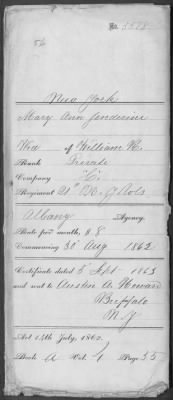 No. 3528
New York
Mary Ann
Wid of William H.
Rank Private
Company "C"
Regiment 21" N.Y. Vols
Albany Agency.
Rate per month, $8
Commencing 30 Aug 1862
Certificate dated 5 Sept 1863
and sent to Austin A. Howard
Buffalo
N.Y.
Act 14th July, 1862.
Book A Vol. 1 Page 35